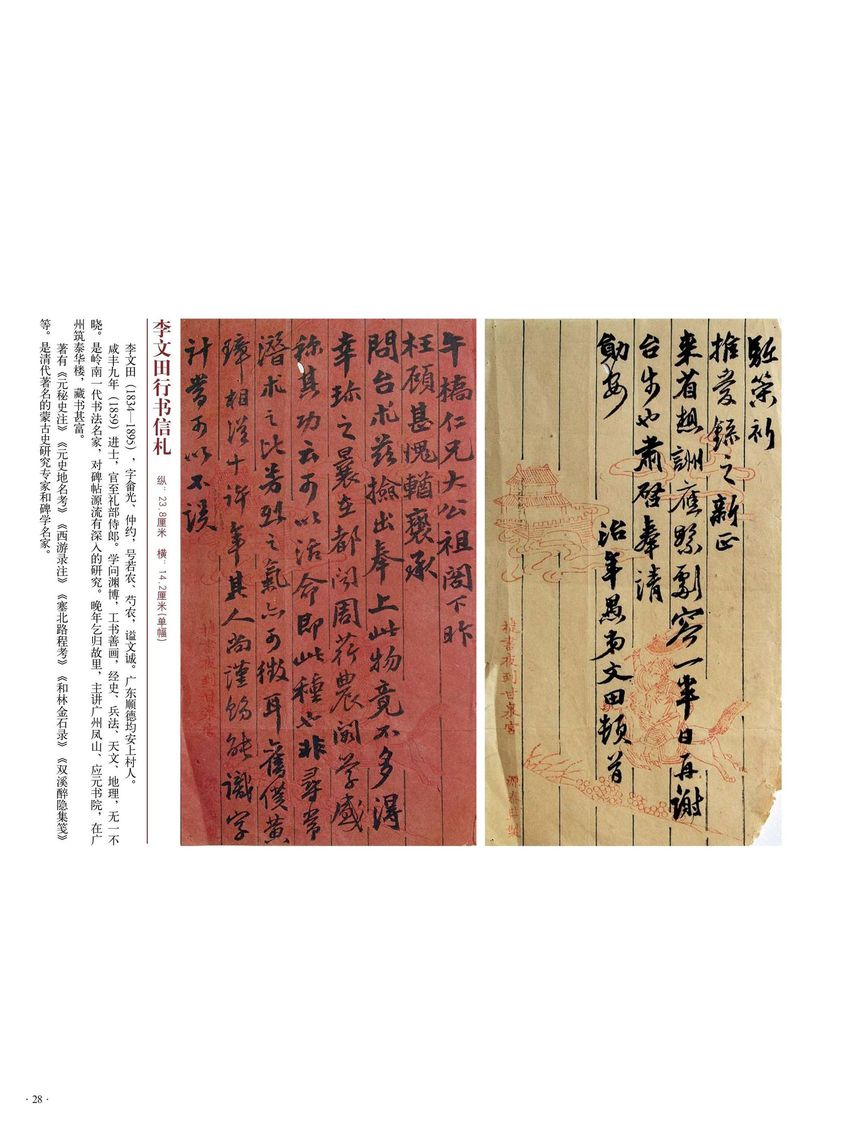 驱策祈
推爱録之新正
来省趋詶應繁劇容一半日再謝
台步也肅啓奉請
勛安
治年愚弟文田頓首
携書夜到甘泉宮
午橋仁兄大公祖閣下昨
枉顧甚愧輶褻承
問台朮兹撿出奉上此物竟不多得
幸珍之曩在都閣周荇農閣学盛
称其功云可以活命即此種也非尋常
潛朮之比芳烈之氣亦可徵耳舊僕黄
璋相從十許年其人尚謹飭能識字
計当可以不误
携書夜到甘泉宮
李文田行书信札
纵：23.8厘米 横：14.2厘米(单幅)
李文田（1834—1895），字畲光、仲约，号若农、芍农，谥文诚。广东顺德均安上村人。
咸丰九年（1859）进士，官至礼部侍郎。学问渊博，工书善画，经史、兵法、天文、地理，无一不
晓。是岭南一代书法名家，对碑帖源流有深入的研究。晚年乞归故里，主讲广州凤山、应元书院，在广
州筑泰华楼，藏书甚富。
著有《元秘史注》《元史地名考》《西游录注》《塞北路程考》《和林金石录》《双溪醉隐集笺》
等。是清代著名的蒙古史研究专家和碑学名家。
· 28 ·